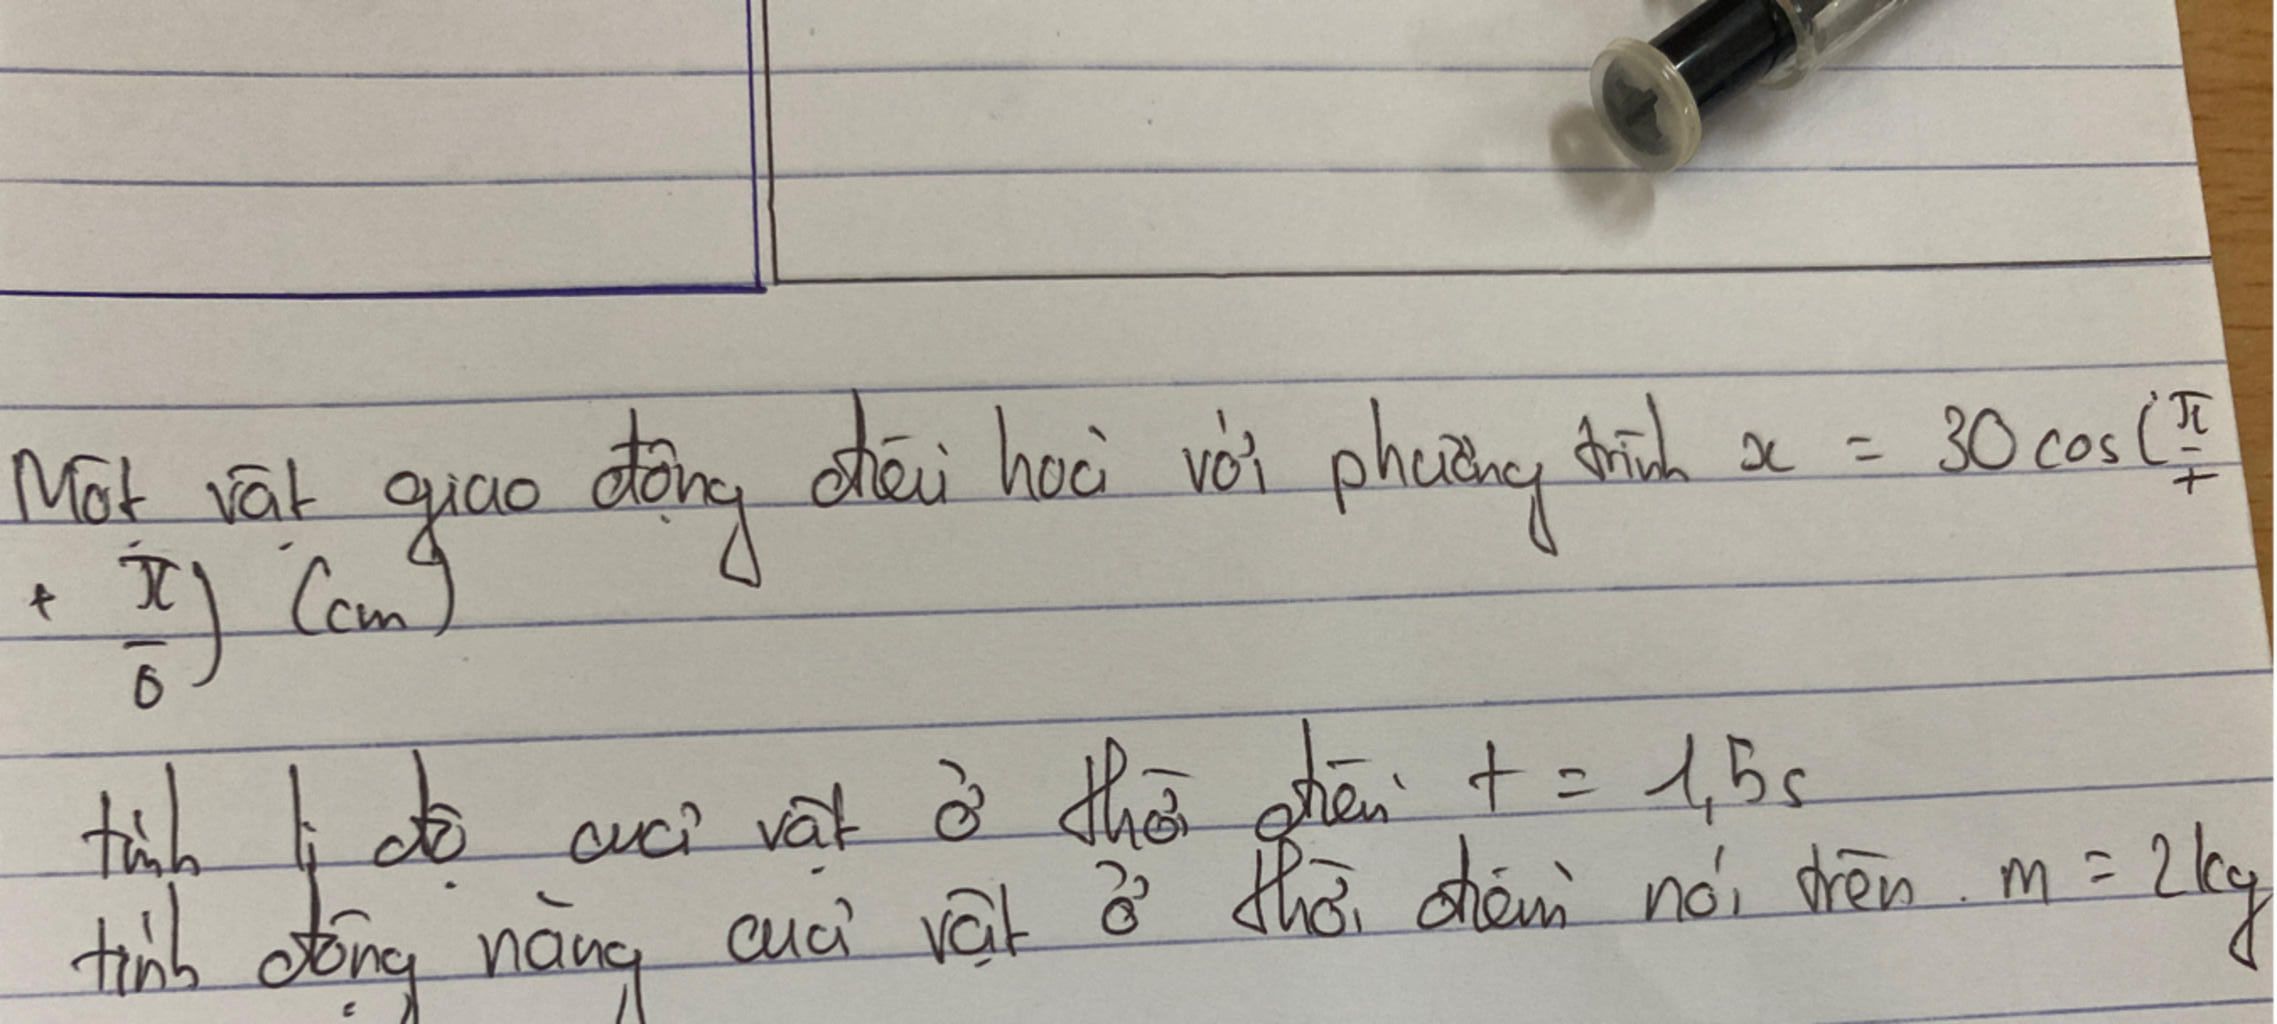 Một vật giao động điều hoà với phương trình x = 30 cos (π/t
+ π/6) (cm)
tính li độ của vật ở thời điểm t = 1,5s
tính động năng của vật ở thời điểm nói trên. m = 2kg